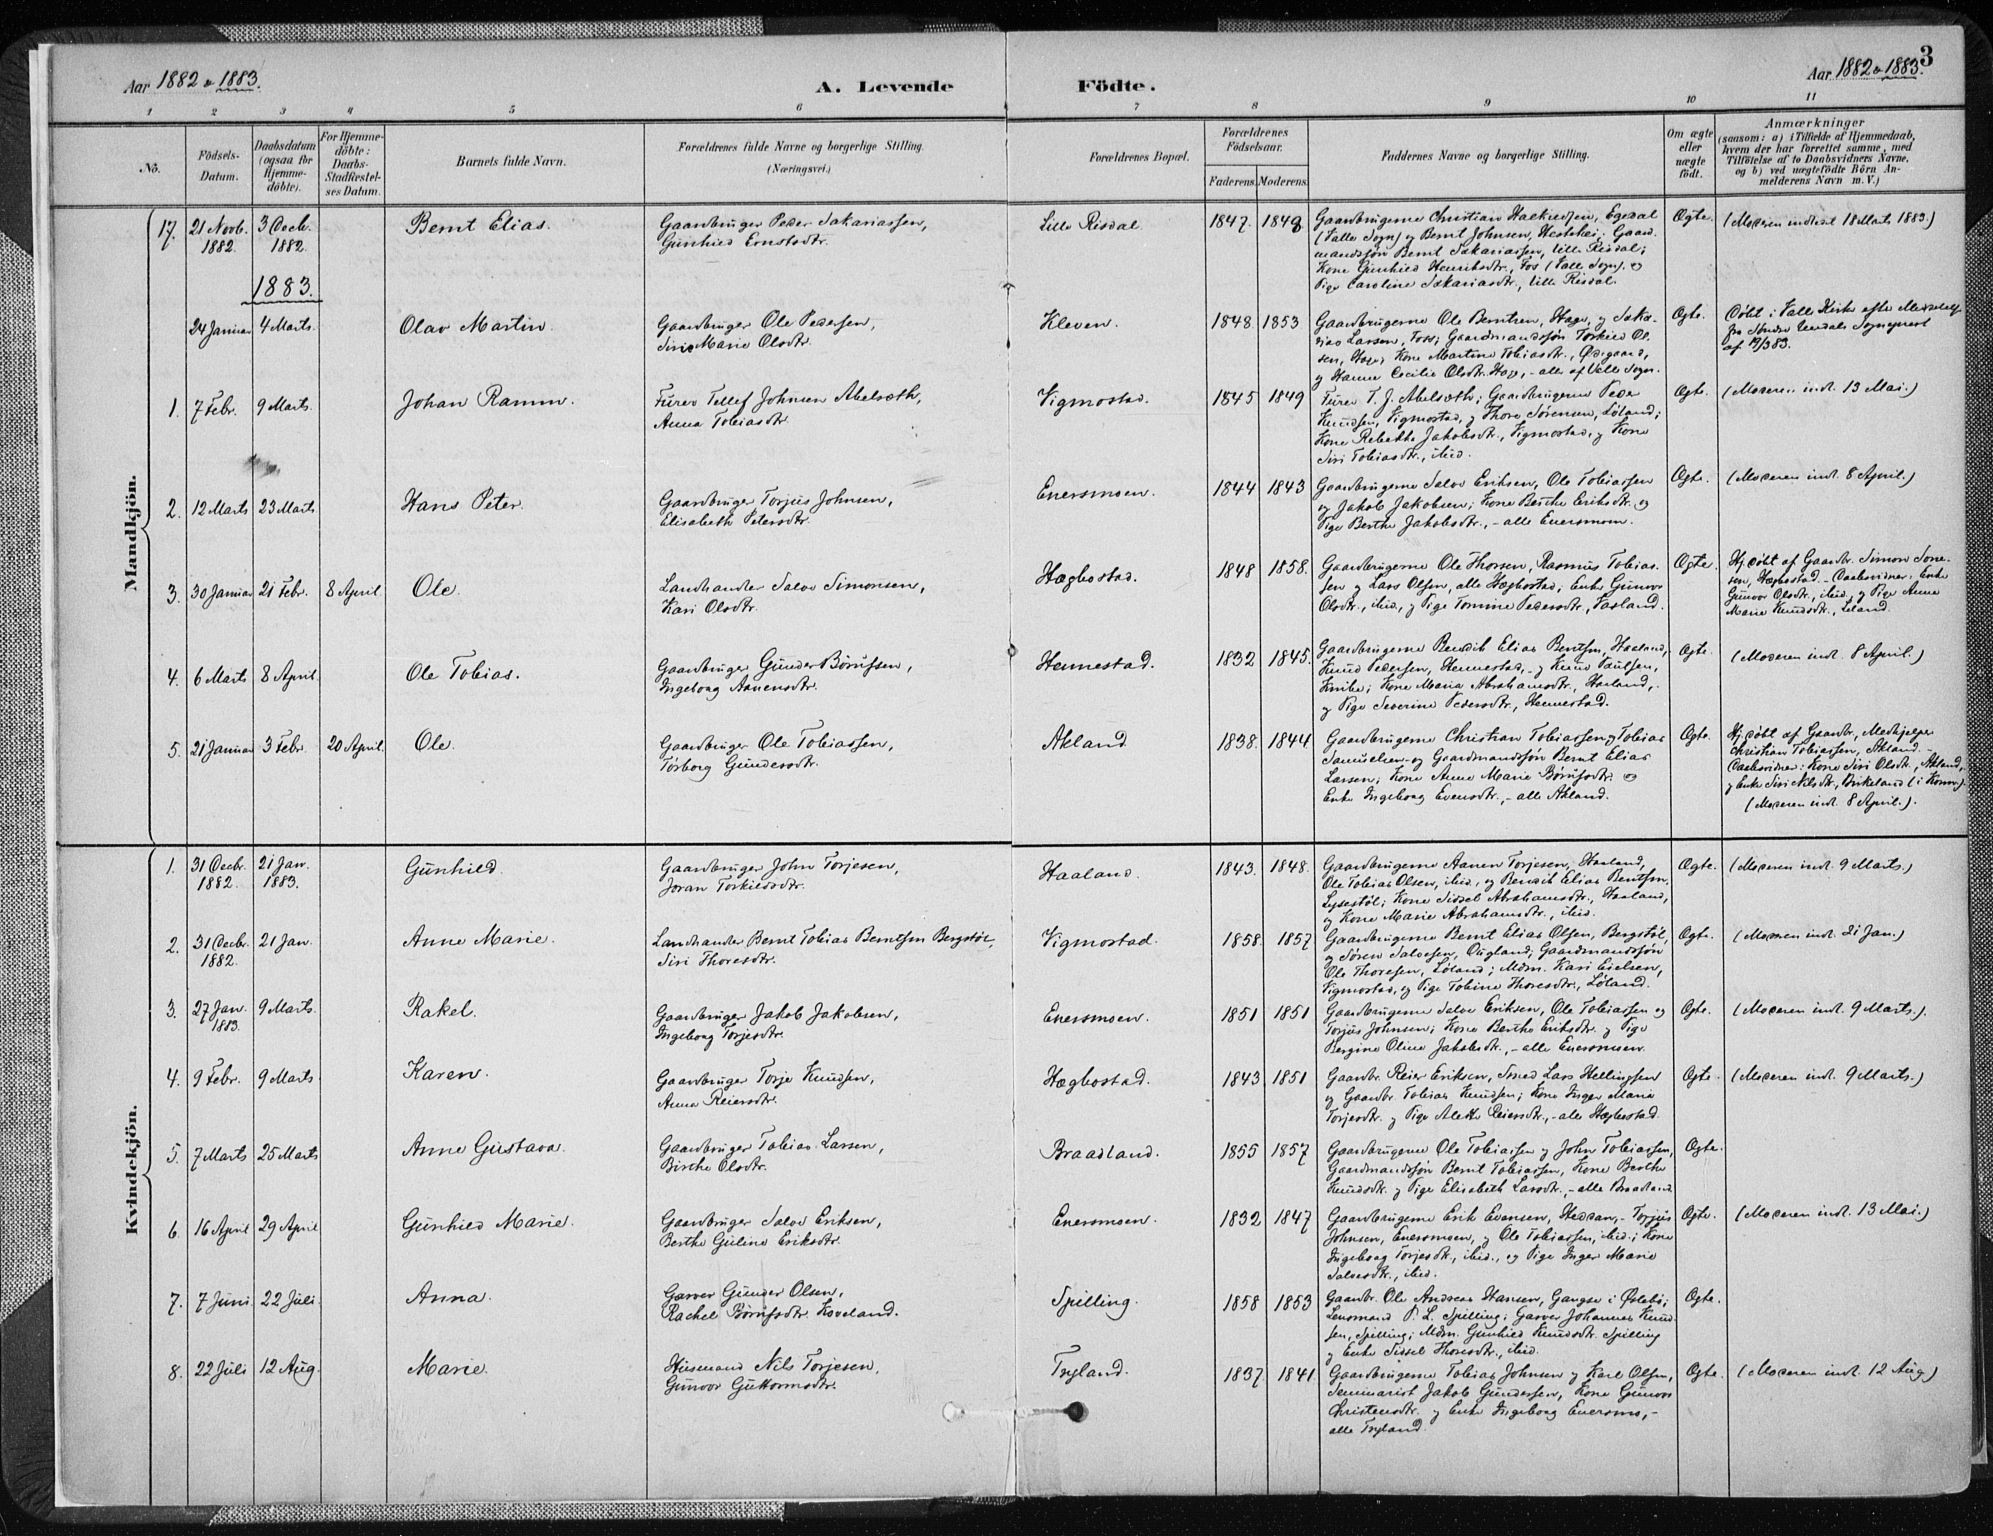 Aar 1882 & 1883.
A. Levende Födte.
Aar 1882 & 1883.
3
1 2 3 4 5 6 7 8 9 10 11
No.
Födsels-
Datum.
Daabsdatum
(ogsaa for
Hjemme-
döbte).
For Hjemme-
döbte:
Daabs-
Stadfæstel-
ses Datum.
Barnets fulde Navn.
Forældrenes fulde Navne og borgerlige Stilling.
(Næringsvei.)
Forældrenes Bopæl.
Forældrenes
Födselsaar.
Faderens. Moderens.
Faddernes Navne og borgerlige Stilling.
Om ægte
eller
uægte
födt.
Anmærkninger
(saasom: a) i Tilfælde af Hjemmedaab,
hvem der har forrettet samme, med
Tilföielse af to Daabsvidners Navne,
og b) ved uægtefödte Börn An-
melderens Navn m. V.)
Mandkjön.
17. 21 Novb. 1882. 3 Decb. 1882. Bernt Elias.
Gaardbruger Peder Sakariassen,
Gunhild Ernstsdtr.
Lille Risdal. 1847. 1848
Gaardbrugerne Christian Halkildsen, Egedal
(Valle Sogn) og Bernt Johnsen, Hesthei; Gaard-
mandssøn Bernt Sakariassen, Lille Risdal;
Kone Gunhild Henriksdtr., Fos (Valle Sogn), og
Pige Caroline Sakariasdtr., Lille Risdal.
Ægte. (Moderen indledet 18 Marts 1883.)
1883.
24 Januar 4 Marts. Olav Martin.
Gaardbruger Ole Pedersen,
Siri Marie Olsdtr.
Kleven. 1848 1853
Gaardbrugerne Ole Berntsen, Hage, og Saka-
rias Larsen, Foss; Gaardmandssøn Torkild Ol-
sen, Hage; Kone Martine Tobiasdtr., Ødegaard,
og Hanne Cecilie Olsdtr. Hage, - alle af Valle Sogn.
Ægte. Døbt i Valle Kirke efter Meddelelse
fra Søndre Undals Sognepræst
af 19/3 83.
1. 7 Febr. 9 Marts. Johan Ramm.
Furer Tellef Johnsen Abelsæth
Anna Tobiasdtr.
Vigmostad. 1845 1849
Furer T. J. Abelsæth; Gaardbrugerne Peder
Knudsen, Vigmostad, og Thore Sørensen, Løland;
Kone Rebekka Jakobsdtr., Vigmostad, og Kone
Siri Tobiasdtr., ibid.
Ægte. (Moderen indl. 13 Mai.)
2. 12 Marts 23 Marts Hans Peter.
Gaardbruger Torjus Johnsen,
Elisabeth Petersdtr.
Enersmoen. 1844 1843
Gaardbrugerne Salve Eriksen, Ole Tobiassen
og Jakob Jakobsen; Kone Berthe Eriksdtr. og
Pige Berthe Jakobsdtr., - alle Enersmoen.
Ægte. (Moderen indl. 8 April.)
3. 30 Januar 21 Febr. 8 April Ole.
Landhandler Salve Simonsen,
Kari Olsdtr.
Hægbostad. 1848 1858.
Gaardbrugerne Ole Thorsen, Rasmus Tobias-
sen og Lars Olsen, alle Hægbostad; Enke Gunvor
Olsdtr., ibid., og Pige Tomine Pedersdtr., Fasland.
Ægte. Hj. døbt af Gaardbr. Simon Søren-
sen, Hægbostad. - Daabsvidner: Enke
Gunvor Olsdtr., ibid., og Pige Anne
Marie Knudsdtr., Løland.
4. 6 Marts 8 April Ole Tobias.
Gaardbruger Gunder Børufsen,
Ingeborg Aanensdtr.
Hennestad. 1832 1845.
Gaardbrugerne Bendik Elias Berntsen, Haaland,
Knud Pedersen, Hennestad, - og Knud Paulsen,
Knibe; Kone Maria Abrahamsdtr., Haaland,
og Pige Severine Pedersdtr., Hennestad.
Ægte. (Moderen indl. 8 April.)
5. 21 Januar 3 Febr. 20 April. Ole.
Gaardbruger Ole Tobiassen,
Torborg Gundersdtr.
Akland 1838. 1844.
Gaardbrugerne Christian Tobiassen og Tobias
Samuelsen og Gaardmandssøn Bernt Elias
Larsen; Kone Anne Marie Børufsdtr. og
Enke Ingeborg Evensdtr., - alle Akland.
Ægte. Hj. døbt af Gaardbr., Medhjelper
Christian Tobiassen, Akland. -
Daabsvidner: Kone Siri Olsdtr., Akland,
og Enke Siri Nilsdtr., Birkeland (i Konsm.).
(Moderen indl. 8 April.)
Kvindekjön.
1. 31 Decbr. 1882. 21 Jan. 1883. Gunhild.
Gaardbruger John Torjesen,
Joran Torkildsdtr.
Haaland. 1843. 1848.
Gaardbrugerne Aanen Torjesen, Haaland,
Ole Tobias Olsen, ibid., og Bendik Elias Berntsen,
Lysestøl; Kone Sissel Abrahamsdtr., Haaland,
og Kone Marie Abrahamsdtr., ibid.
Ægte. (Moderen indl. 9 Marts.)
2. 31 Decbr. 1882. 21 Jan. Anne Marie.
Landhandler Bernt Tobias Berntsen Bergstøl,
Siri Thoresdtr.
Vigmostad. 1858. 1857
Gaardbrugerne Bernt Elias Olsen, Bergstøl,
og Søren Salvesen, Øigland; Gaardmandssøn
Ole Thoresen, Løland; Mdm. Kari Eielsen,
Vigmostad, og Pige Tobine Thoresdtr., Løland.
Ægte. (Moderen indl. 21 Jan.)
3. 27 Jan. 1883. 9 Marts. Rakel.
Gaardbruger Jakob Jakobsen,
Ingeborg Torjesdtr.
Enersmoen. 1851 1851
Gaardbrugerne Salve Eriksen, Ole Tobiassen og
Torjus Johnsen; Kone Berthe Eriksdtr. og Pige
Bergine Oline Jakobsdtr., - alle Enersmoen.
Ægte. (Moderen indl. 9 Marts.)
4. 9 Febr. 9 Marts Karen.
Gaardbruger Torje Knudsen,
Anna Reiersdtr.
Hægbostad. 1843 1851
Gaardbr. Reier Eriksen, Smed Lars Hellingsen
og Gaardbr. Tobias Knudsen; Kone Inger Maria
Torjesdtr. og Pige Alette Reiersdtr., - alle Hægbostad.
Ægte. (Moderen indl. 9 Marts.)
5. 7 Marts 25 Marts Anne Gustava.
Gaardbruger Tobias Larsen,
Birthe Olsdtr.
Braadland. 1855 1857
Gaardbrugerne Ole Tobiassen og John Tobiassen,
Gaardmandssøn Bernt Tobiassen, Kone Berthe
Knudsdtr. og Pige Elisabeth Larsdtr., - alle Braadland
Ægte.
6. 16 April 29 April Gunhild Marie.
Gaardbruger Salve Eriksen,
Berthe Guline Eriksdtr.
Enersmoen. 1832 1847
Gaardbrugerne Erik Evensen, Heddan, - Torjus
Johnsen, Enersmoen, og Ole Tobiassen, ibid.; Kone
Ingeborg Torjesdtr., ibid., og Pige Inger Marie
Salvesdtr., ibid.
Ægte. (Moderen indl. 13 Mai.)
7. 7 Juni 22 Juli. Anna.
Garver Gunder Olsen,
Rachel Børufsdtr. Koveland.
Spilling. 1858 1853
Gaardbr. Ole Andreas Hansen, Gangsø i Øslebø;
Lensmand P. L. Spilling; Garver Johannes Knud-
sen, Spilling; Mdm. Gunhild Knudsdtr. Spilling
og Enke Sissel Thoresdtr., ibid.
Ægte.
8. 22 Juli 12 Aug. Marie.
Husmand Nils Torjesen,
Gunvor Guttormsdtr.
Tryland. 1837 1841.
Gaardbrugerne Tobias Johnsen og Karl Olsen,
Seminarist Jakob Gundersen, Kone Gunvor
Christensdtr. og Enke Ingeborg Enersmo, -
alle Tryland.
Ægte. (Moderen indl. 12 Aug.)